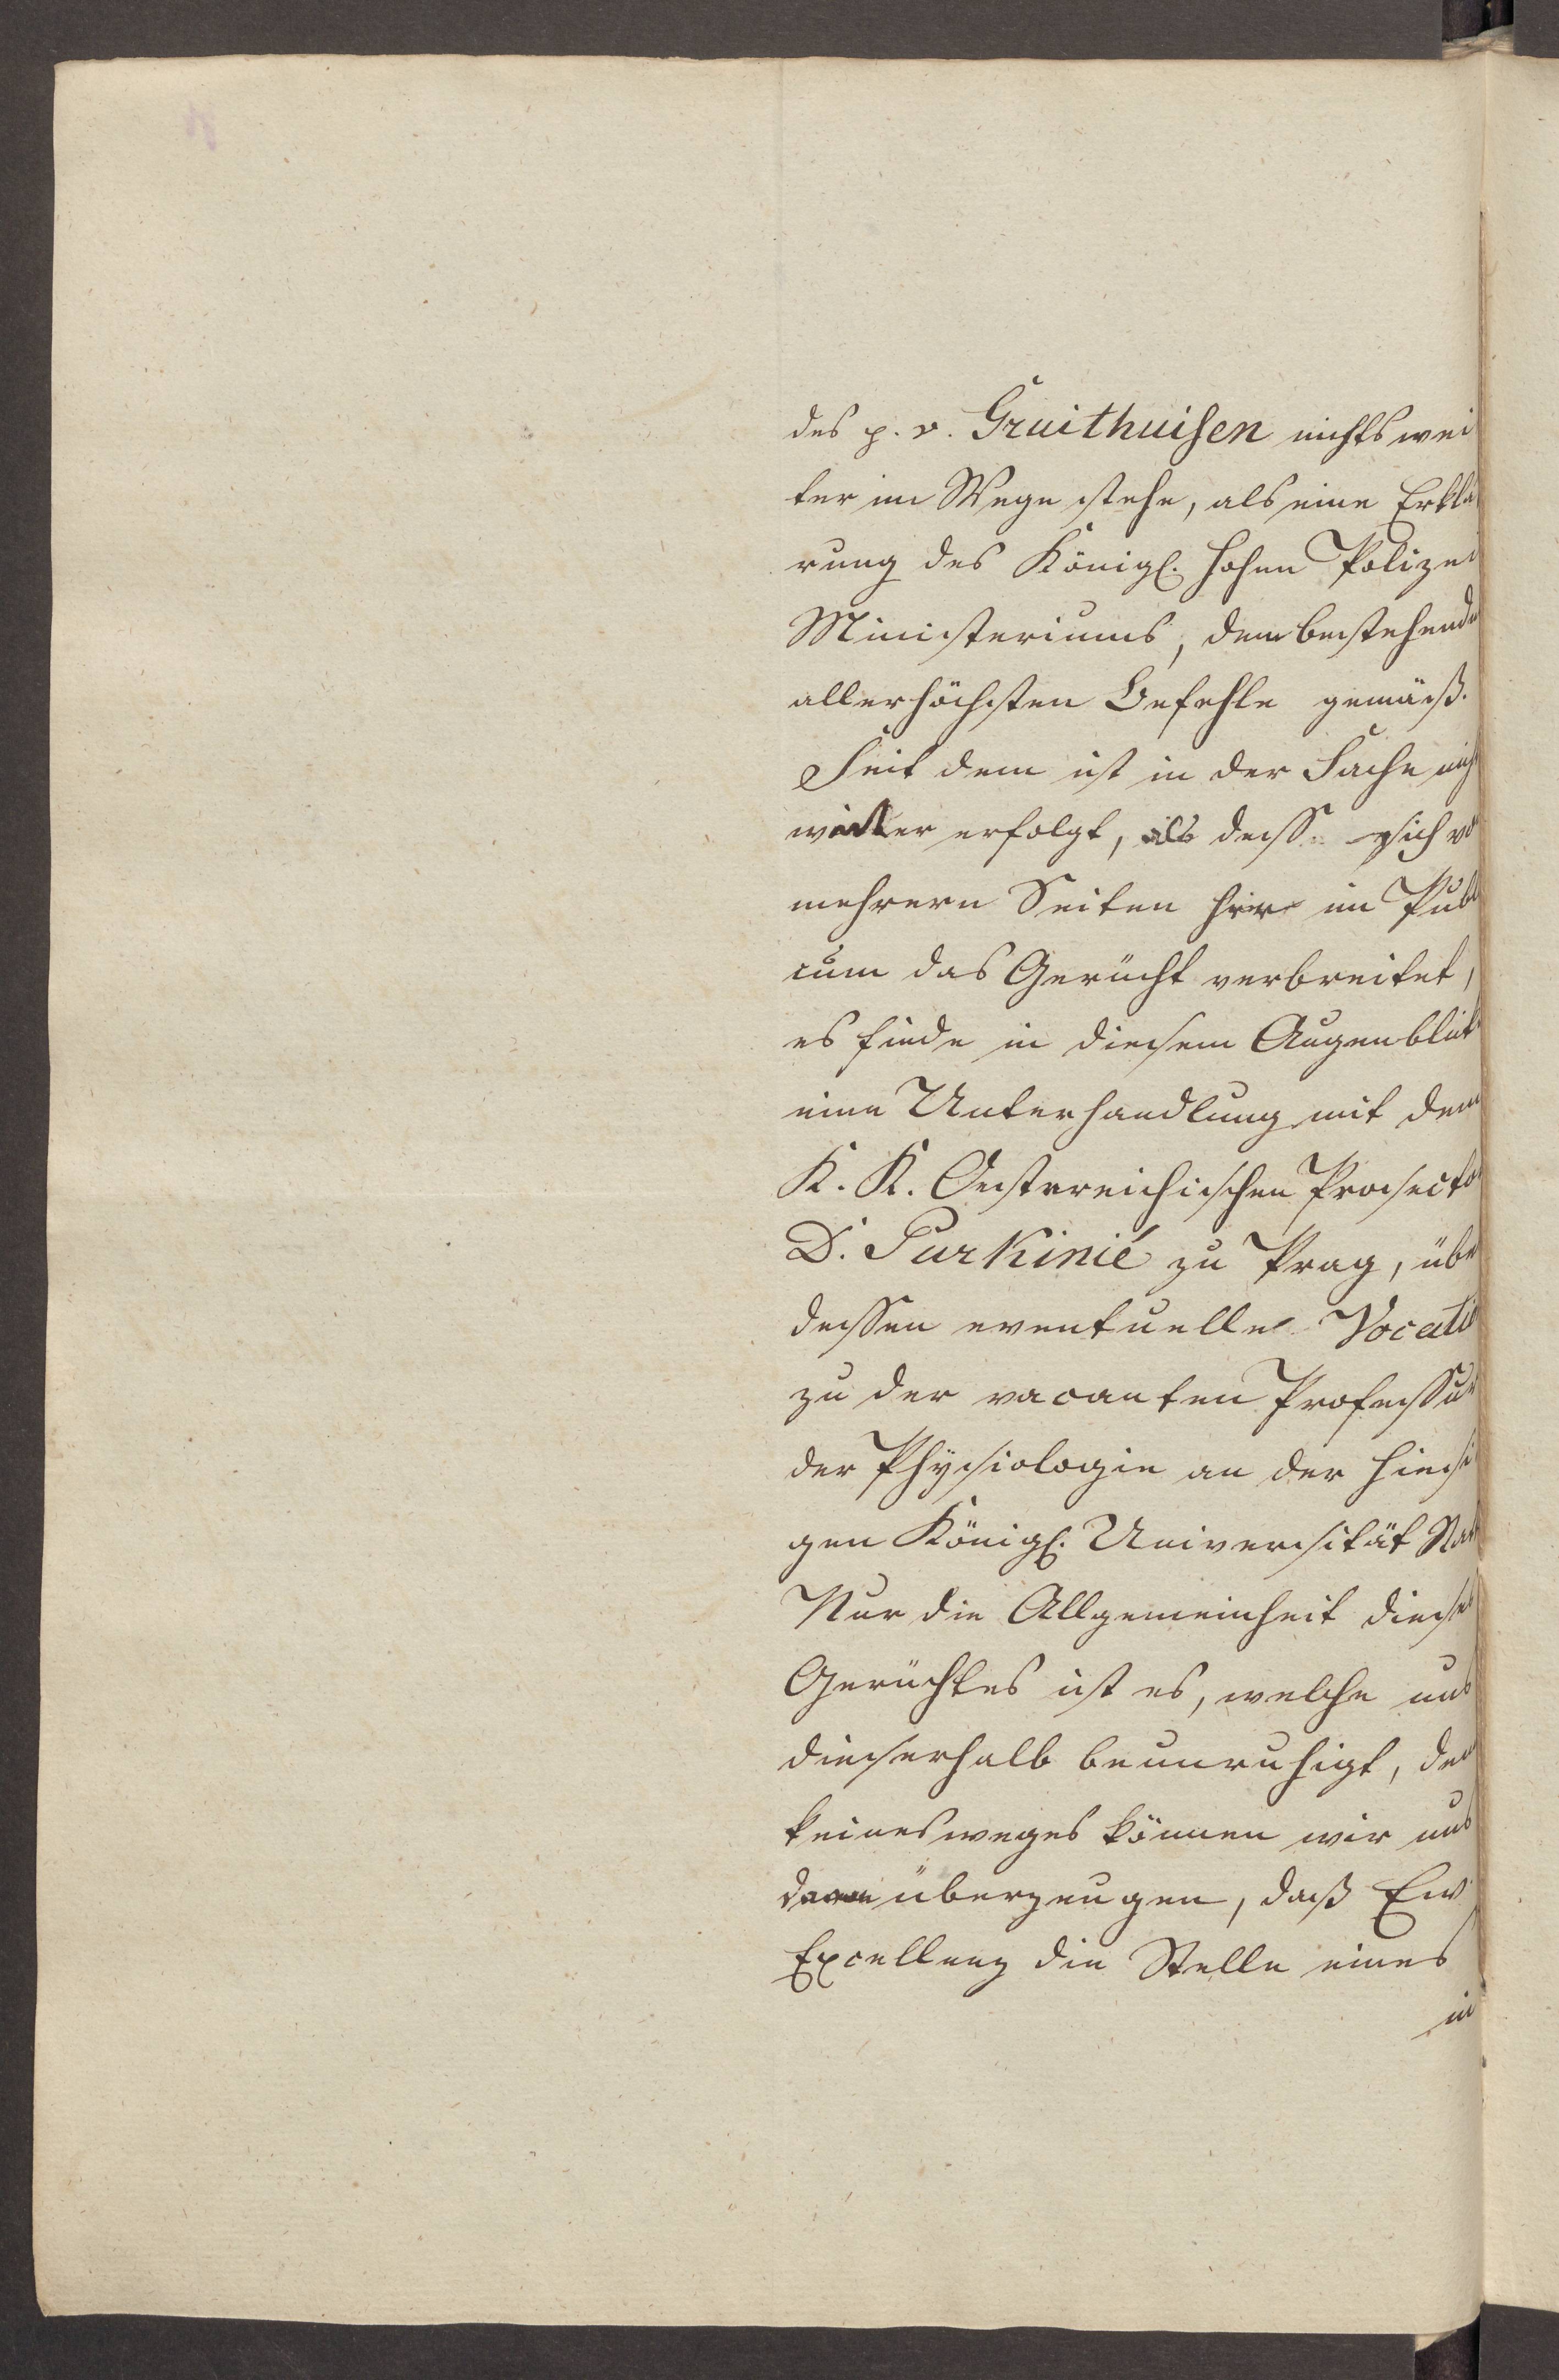 des p. v. Gruithuisen nichts wei
ter im Wege stehe, als eine Erklä
rung des Königl. hohen Polizei
Ministeriums, dem bestehende
allerhöchsten Befehle gemäß.
Seit dem ist in der Sache nich
weiter erfolgt, als daß sich vo
mehrern Seiten hier im Publ
icum das Gerücht verbreitet,
es finde in diesem Augenblick
eine Unterhandlung mit dem
K. K. Oestereichischen Prosecto
D. Purkinié zu Prag, übe
dessen eventuelle Vocatio
zu der vacanten Professur
der Physiologie an der hiesi
gen Königl. Universität Stat
Nur die Allgemeinheit dieses
Gerüchtes ist es, welche uns
dieserhalb beunruhigt, den
keinesweges können wir uns
davon überzeugen, daß Ew.
Excellenz die Stelle eines
in